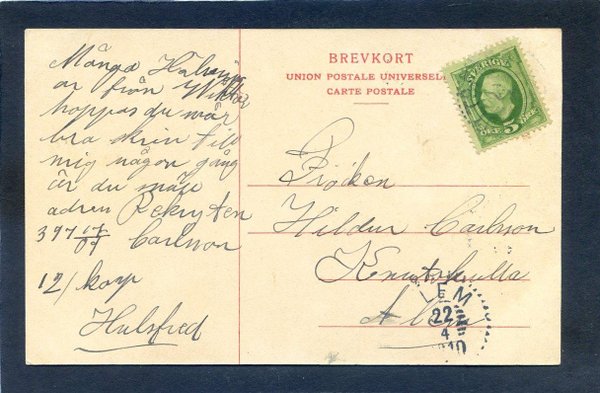 Många Hälsningar
ar från Wiktor
hoppas du mår
bra skriv till
mig någon gång
är du snäll
adress Rekryten
397 17/09 Carlsson
12/ korp
Hulsfred
BREVKORT
UNION POSTALE UNIVERSELLE
CARTE POSTALE
SVERIGE
5 ÖRE
Fröken
Hilder Carlsson
Knutshulta
LEM
22
4